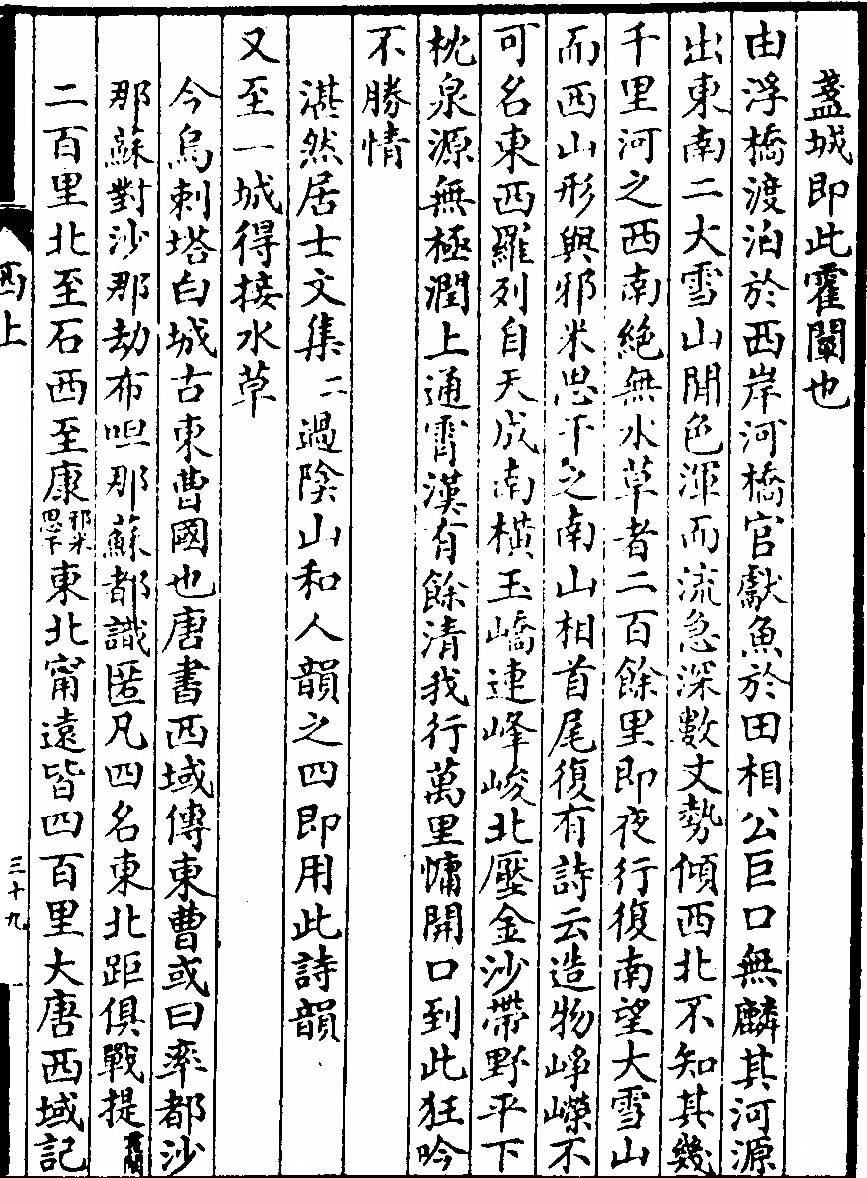 盞城即此霍闡也
由浮橋渡泊於西岸河橋官獻魚於田相公巨口無麟其河源
出東南二大雪山閒色渾而流急深數丈勢傾西北不知其幾
千里河之西南絕無水草者二百餘里即夜行復南望大雪山
而西山形與邪米思干之南山相首尾復有詩云造物崢嶸不
可名東西羅列自天成南橫玉嶠連峰峻北壓金沙帶野平下
枕泉源無極潤上通霄漢有餘清我行萬里慵開口到此狂吟
不勝情
湛然居士文集二過陰山和人韻之四即用此詩韻
又至一城得接水草
今烏剌塔白城古東曹國也唐書西域傳東曹或曰率都沙
那蘇對沙那劫布呾那蘇都識匿凡四名東北距俱戰提霍闡
二百里北至石西至康邪米思干東北甯遠皆四百里大唐西域記
西上
三十九